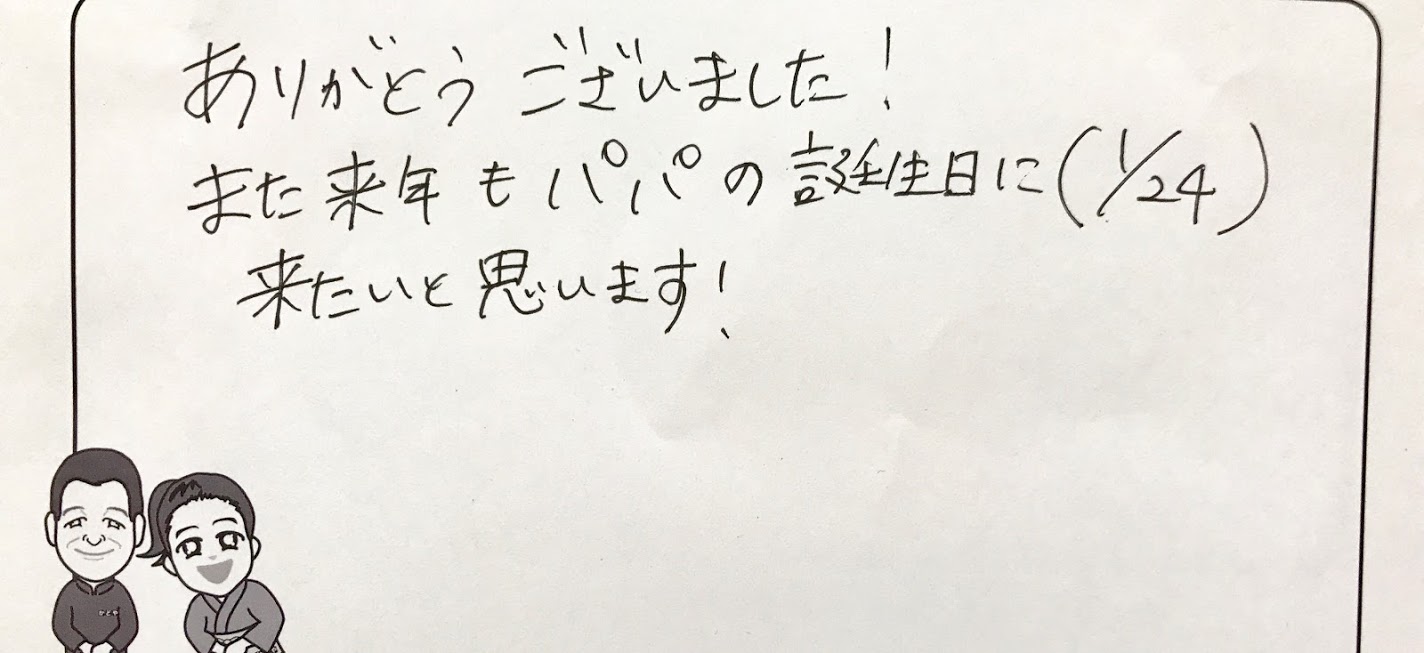 ありがとうございました!
また来年もパパの誕生日に(1/24)
来たいと思います!
かどや